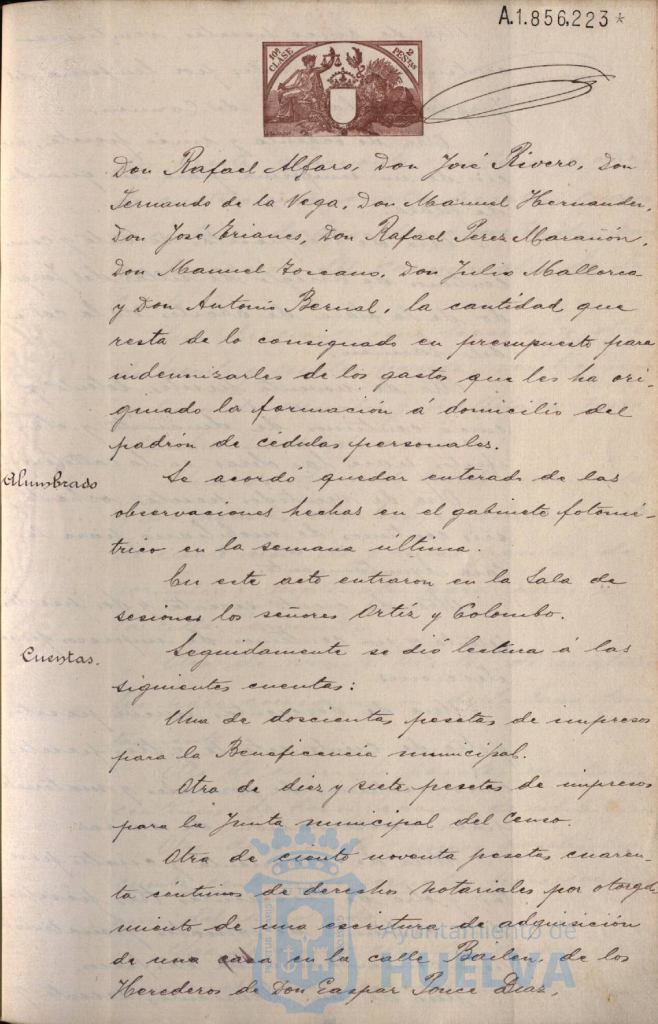 A.1.856.223*
10ª CLASE
2 PESTAS
Don Rafael Alfaro, Don José Rivero, Don
Fernando de la Vega, Don Manuel Hernander,
Don José Trianes, Don Rafael Perez Marañón,
Don Manuel Toscano, Don Julio Mallorca
y Don Antonio Bernal, la cantidad que
resta de lo consignado en presupuesto para
indemnizarles de los gastos que les ha ori-
ginado la formación á domicilio del
padrón de cédulas personales.
Alumbrado
Se acordó quedar enterado de las
observaciones hechas en el gabinete fotomé-
trico en la semana última.
En este acto entraron en la Sala de
sesiones los señores Ortiz y Colombo.
Cuentas.
Seguidamente se dió lectura á las
siguientes cuentas:
Una de doscientas pesetas de impresos
para la Beneficencia municipal.
Otra de diez y siete pesetas de impresos
para la Junta municipal del Censo.
Otra de ciento noventa pesetas cuaren-
ta céntimos de derechos notariales por otorga-
miento de una escritura de adquisición
de una casa en la calle Bailen, de los
Herederos de Don Gaspar Ponce Diaz,
Ayuntamiento de
HUELVA